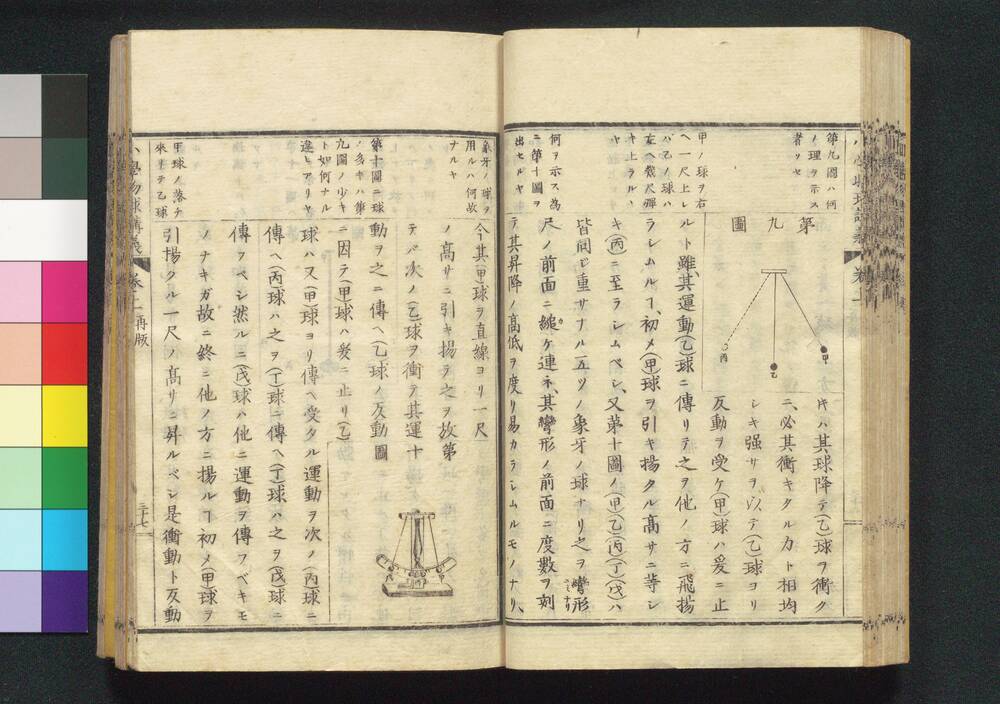 第九圖ハ何
ノ理ヲ示ス
者ソヤ
第九圖
甲
乙
丙
キハ其球降テ(乙)球ヲ衝ク
ニ必其衝キタル力ト相均
シキ强サヲ以テ(乙)球ヨリ
反動ヲ受ケ(甲)球ハ爰ニ止
甲ノ球ヲ右
ヘ一尺上レ
ハ乙ノ球ハ
左ヘ幾尺彈
キ上ラルヽ
ヤ
ルト雖其運動(乙)球ニ傳リテ之ヲ他ノ方ニ飛揚
ラシムルヿ初メ(甲)球ヲ引キ揚タル高サニ等シ
キ(丙)ニ至ラシムベシ、又第十圖ノ(甲)(乙)(丙)(丁)(戊)ハ
皆同ジ重サナル五ツノ象牙ノ球ナリ之ヲ彎形
何ヲ示ス為
ニ第十圖ヲ
出セルヤ
尺ノ前面ニ縋ケ連ネ、其彎形ノ前面ニ度數ヲ刻
テ其昇降ノ高低ヲ度リ易カラシムルモノナリ、
象牙ノ球ヲ
用ルハ何故
ナルヤ
今其(甲)球ヲ直線ヨリ一尺
ノ高サニ引キ揚テ之ヲ放
テバ次ノ(乙)球ヲ衝テ其運
動ヲ之ニ傳ヘ(乙)球ノ反動
ニ因テ(甲)球ハ爰ニ止リ(乙)
第十圖
第十圖ニ球
ノ多キハ第
九圖ノ少キ
ト如何ナル
違ヒアリヤ
球ハ又(甲)球ヨリ傳ヘ受タル運動ヲ次ノ(丙)球ニ
傳ヘ(丙)球ハ之ヲ(丁)球ニ傳ヘ(丁)球ハ之ヲ(戊)球ニ
傳フベシ然ルニ(戊)球ハ他ニ運動ヲ傳フベキモ
ノナキガ故ニ終ニ他ノ方ニ揚ルヿ初メ(甲)球ヲ
甲球ノ落チ
來リテ乙球
引揚タル一尺ノ高サニ昇ルベシ是衝動ト反動
卷上
再版
三十七